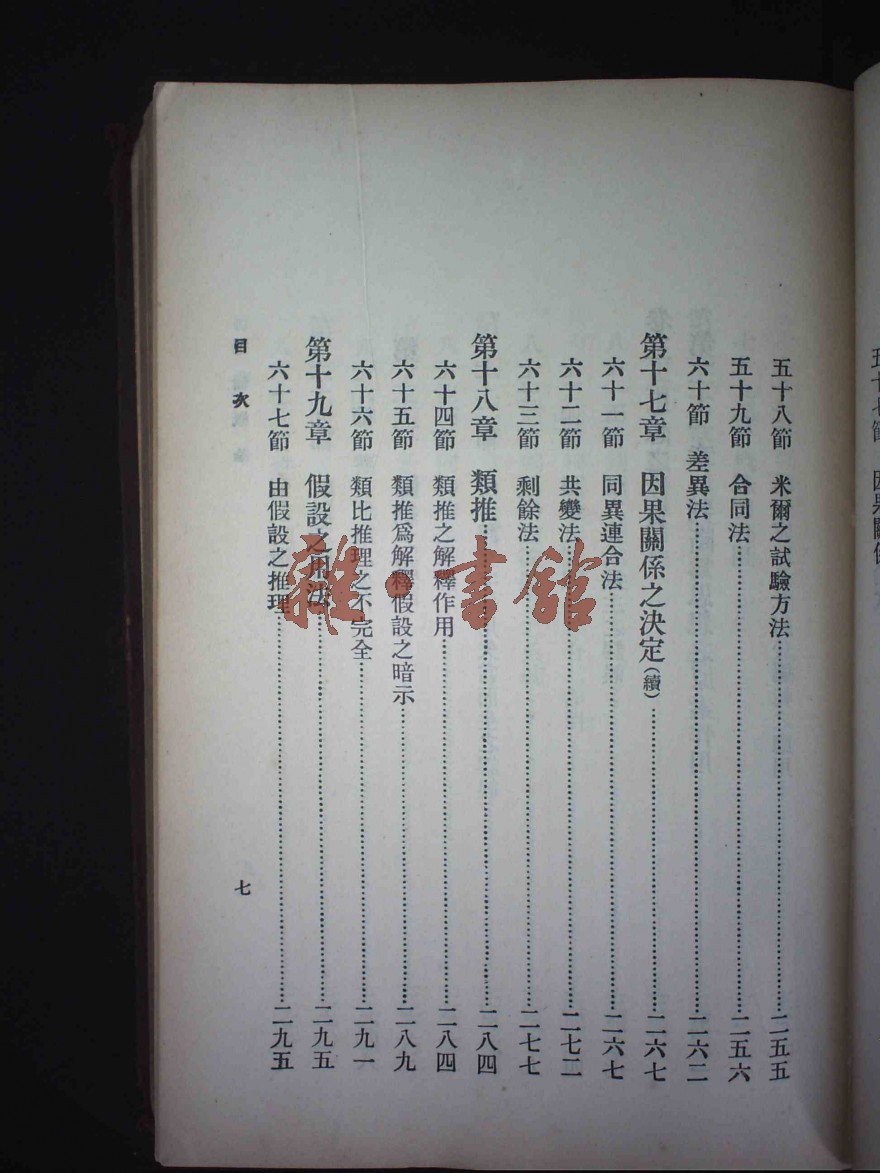 五十八節　米爾之試驗方法……二五五
五十九節　合同法……二五六
六十節　差異法……二六二
第十七章　因果關係之決定（續）……二六七
六十一節　同異連合法……二六七
六十二節　共變法……二七二
六十三節　剩餘法……二七七
第十八章　類推……二八四
六十四節　類推之解釋作用……二八四
六十五節　類推爲解釋假設之暗示……二八九
六十六節　類比推理之不完全……二九一
第十九章　假設之用法……二九五
六十七節　由假設之推理……二九五
目次
七
雜·書館